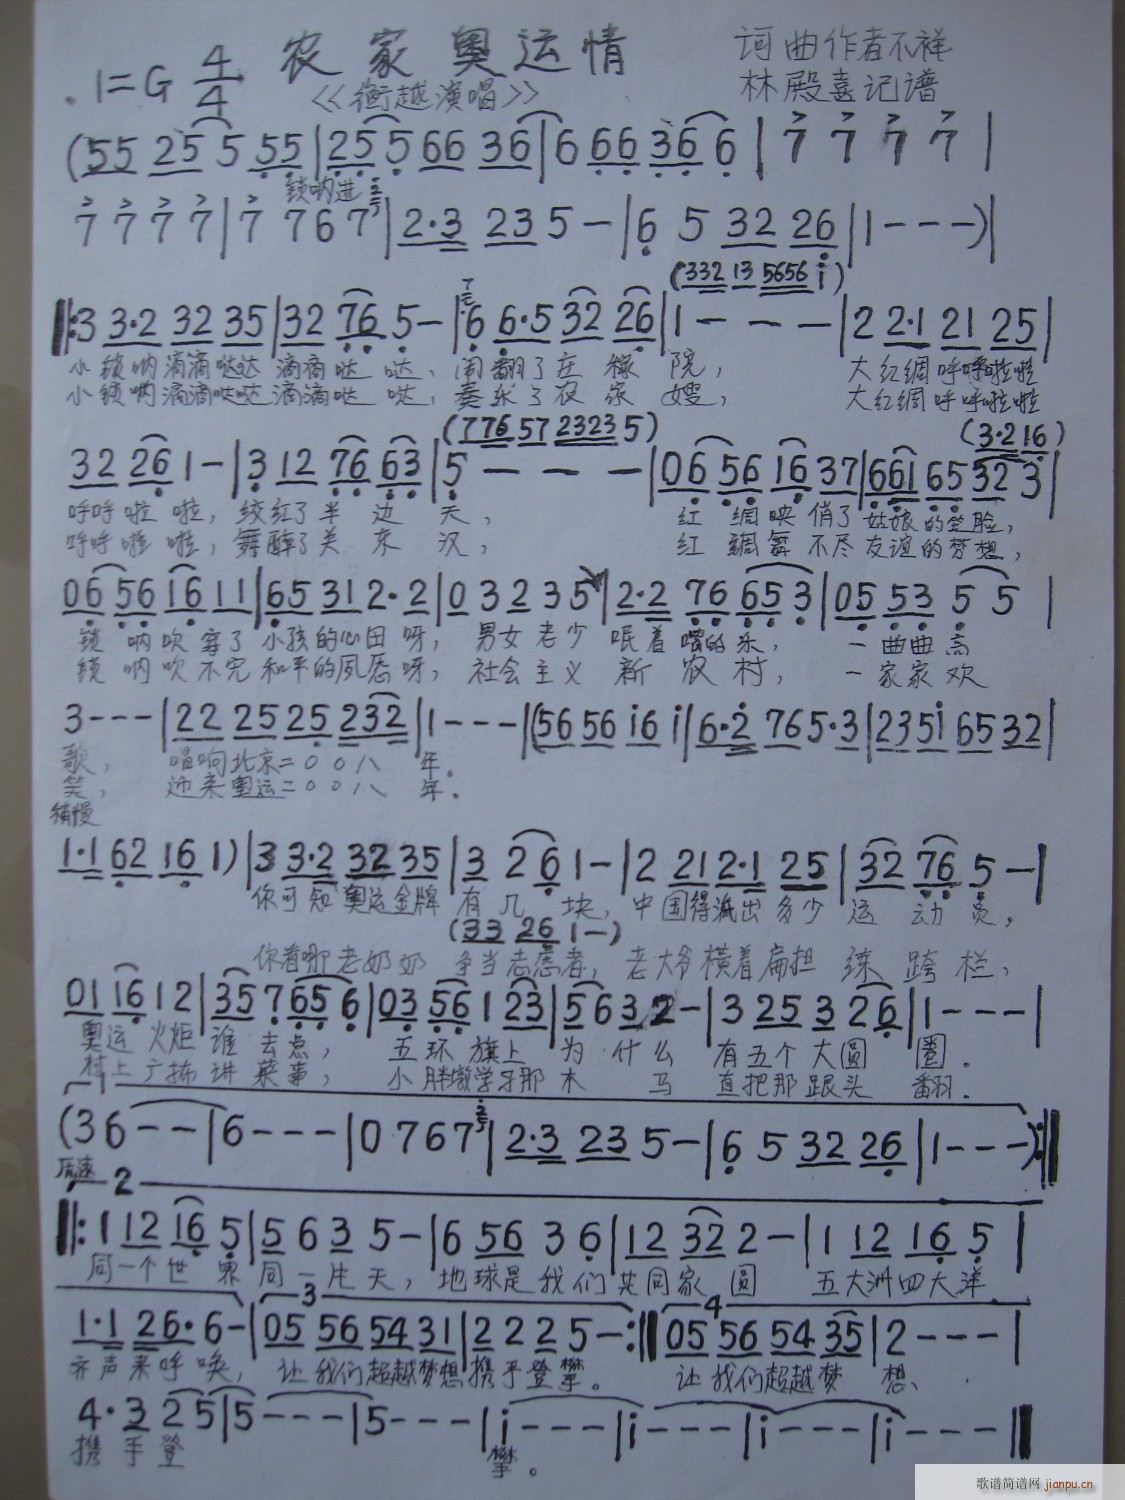 农家奥运情
1=G 4/4
<<衡越演唱>>
词曲作者不祥
林殿喜记谱
(55 25 5 55|25 5 66 36|6 66 36 6| 7 7 7 7 |
锁呐进
7 7 7 7|7 767|2·3 23 5 -|6 5 32 26|1---)|
(332 13 5656 i)
‖:3 3·2 32 35|32 76 5-|6 6·5 32 26|1 - - -|2 2·1 21 25|
小锁呐滴滴哒达滴滴哒哒,闹翻了庄稼院, 大红绸呼呼啦啦
小锁呐滴滴哒哒滴滴哒哒,奏乐了农家嫂, 大红绸呼呼啦啦
(776 57 2323 5) (3·2 16)
32 26 1-|3 12 76 63|5 - - -|06 56 16 37|661 65 32 3|
呼呼啦啦,绞红了半边天, 红绸映俏了姑娘的笑脸,
呼呼啦啦,舞醉了关东汉, 红绸舞不尽友谊的梦想,
06 56 16 11|65 31 2·2|0 3 2 3 5|2·2 76 65 3|05 53 5 5 |
锁呐吹穿了小孩的心田呀,男女老少眠着嘴的乐, 一曲曲高
锁呐吹不完和平的夙愿呀,社会主义新农村, 一家家欢
3---|22 25 25 232|1---|(56 56 i6 i|6·2 76 5·3|235i 65 32|
歌, 唱响北京二00八年。
笑, 迎来奥运二00八年。
稍慢
1·1 62 16 1)|3 3·2 32 35|3 26 1-|2 21 2·1 25|32 76 5-|
你可知奥运金牌有几块,中国得派出多少运动员,
(33 26 1-)
你看哪老奶奶争当志愿者,老大爷横着扁担练跨栏,
01 16 1 2|35 7 65 6|03 56 1 23|5 6 3 2-|3 25 3 26|1---|
奥运火炬谁去点, 五环旗上为什么有五个大圆圈。
村上广播讲菜事, 小胖墩学牙那木马直把那跟头翻。
(36--|6---|0 767|2·3 23 5-|6 5 32 26|1---):‖
2
‖:1 12 16 5|5 6 3 5-|6 56 3 6|12 32 2-|1 12 16 5|
同一个世界同一片天,地球是我们共同家圆 五大洲四大洋
3 4
1·1 26· 6-|05 56 54 31|2 2 2 5-:‖05 56 54 35|2---|
齐声来呼唤,让我们超越梦想携手登攀。 让我们超越梦想、
4·3 2 5|5---|5---|i---|i---|i---|i---‖
携手登 攀。
歌谱简谱网 jianpu.cn